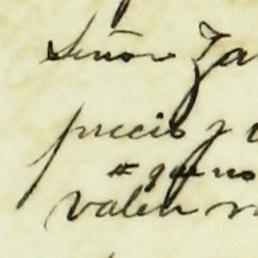 Señor Za
precio y
que no
valen